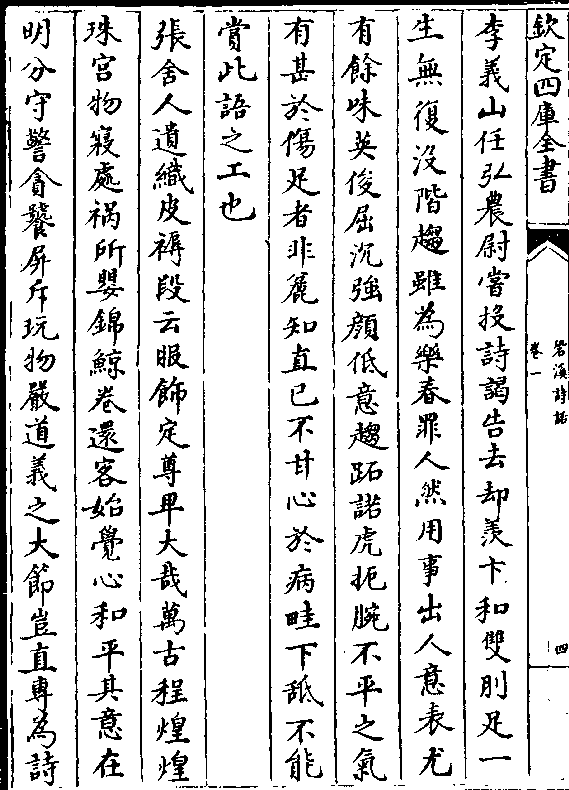 欽定四庫全書
䂬溪詩話
卷一
四
李義山任弘農尉嘗投詩謁告去却羨卞和雙刖足一
生無復没階趨雖為樂春罪人然用事出人意表尤
有餘味英俊屈沉強顔低意趨跖諾虎扼腕不平之氣
有甚於傷足者非麄知直已不甘心於病畦下舐不能
賞此語之工也
張舍人遺織皮褥段云服飾定尊卑大哉萬古程煌煌
珠宫物寢處禍所嬰錦鯨卷還客始覺心和平其意在
明分守警貪饕屏斥玩物嚴道義之大節豈直專為詩